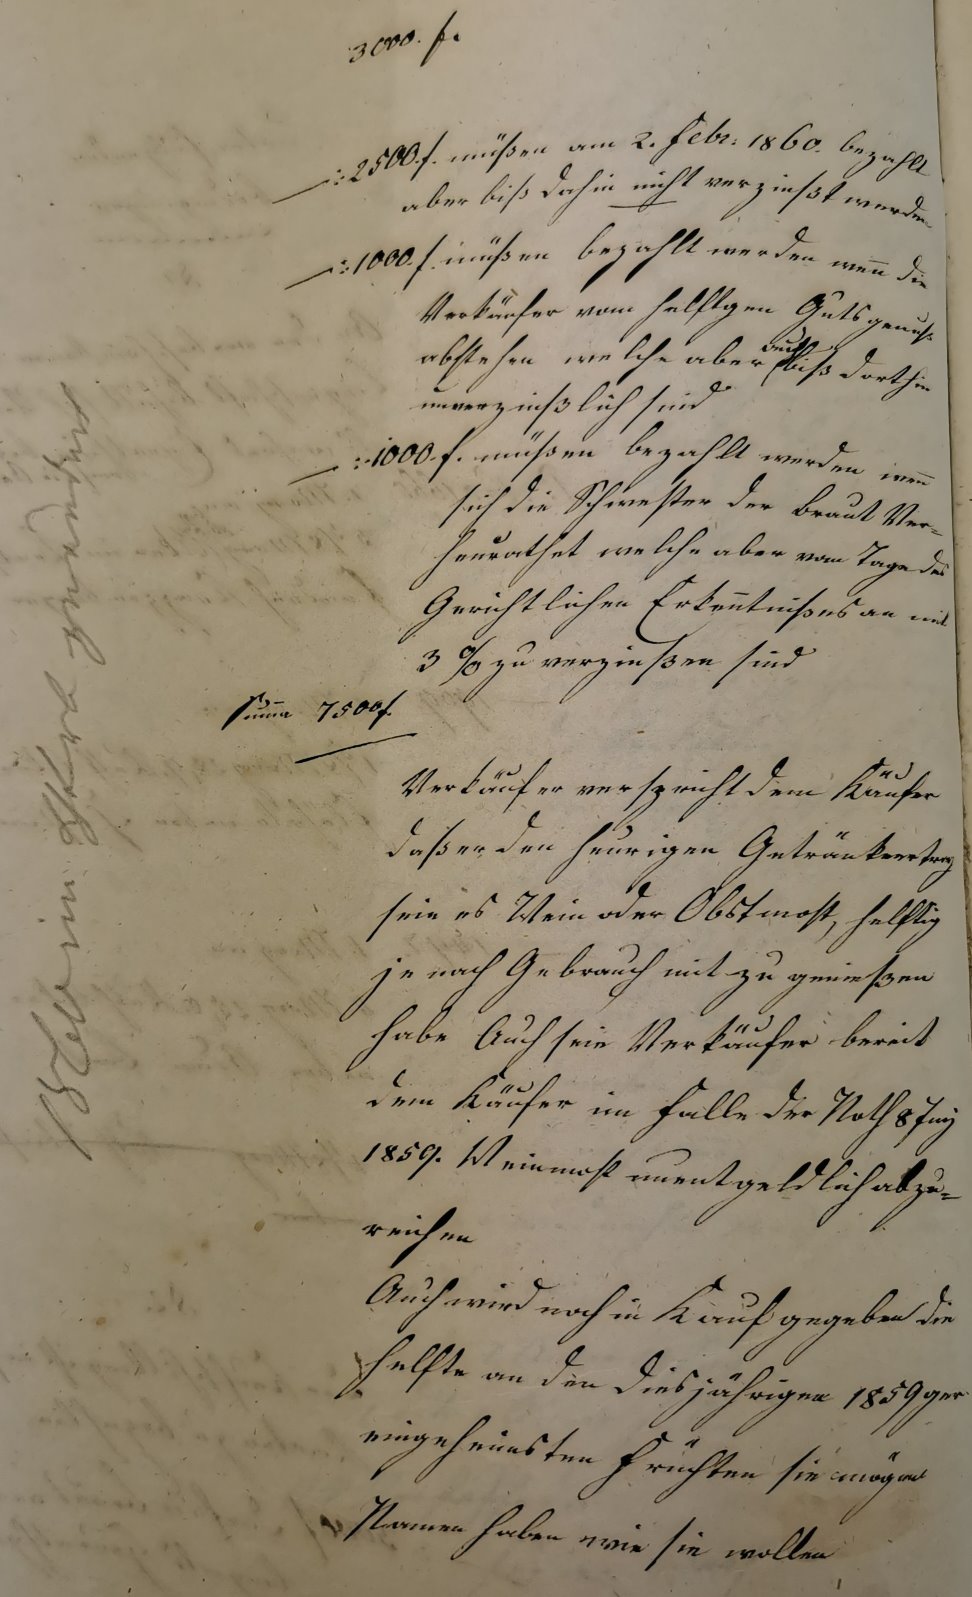 3000. f.
2500 f. müßen am 2. Febr: 1860. bezahlt
aber biß dahin nicht verzinßt werden
1000. f. müßen bezahlt werden wen̄ die
Verkäufer vom helftgen Gutsgenuß
abstehen welche aber auch biß dorthin
unverzinßlich sind
1000. f. müßen bezahlt werden wen̄
sich die Schwester der Braut Ver=
heurathet welche aber vom Tage des
Gerichtlichen Erken̄tnißes an mit
3 % zu verzinßen sind
Suma 7500 f.
Verkäufer verspricht dem Käufer
daß er den heurigen Getränkeertrag
seie es Wein oder Obstmost, helftig
je nach Gebrauch mit zu genießen
habe Auch seie Verkäufer bereit
dem Käufer im Falle der Noth 8 Imj
1859. Weinmost unentgeldlich abzu=
reichen
Auch wird noch in Kauf gegeben die
Helfte an den diesjährigen 1859ger
eingeheimsten Früchten sie mögen
Namen haben wie sie wollen